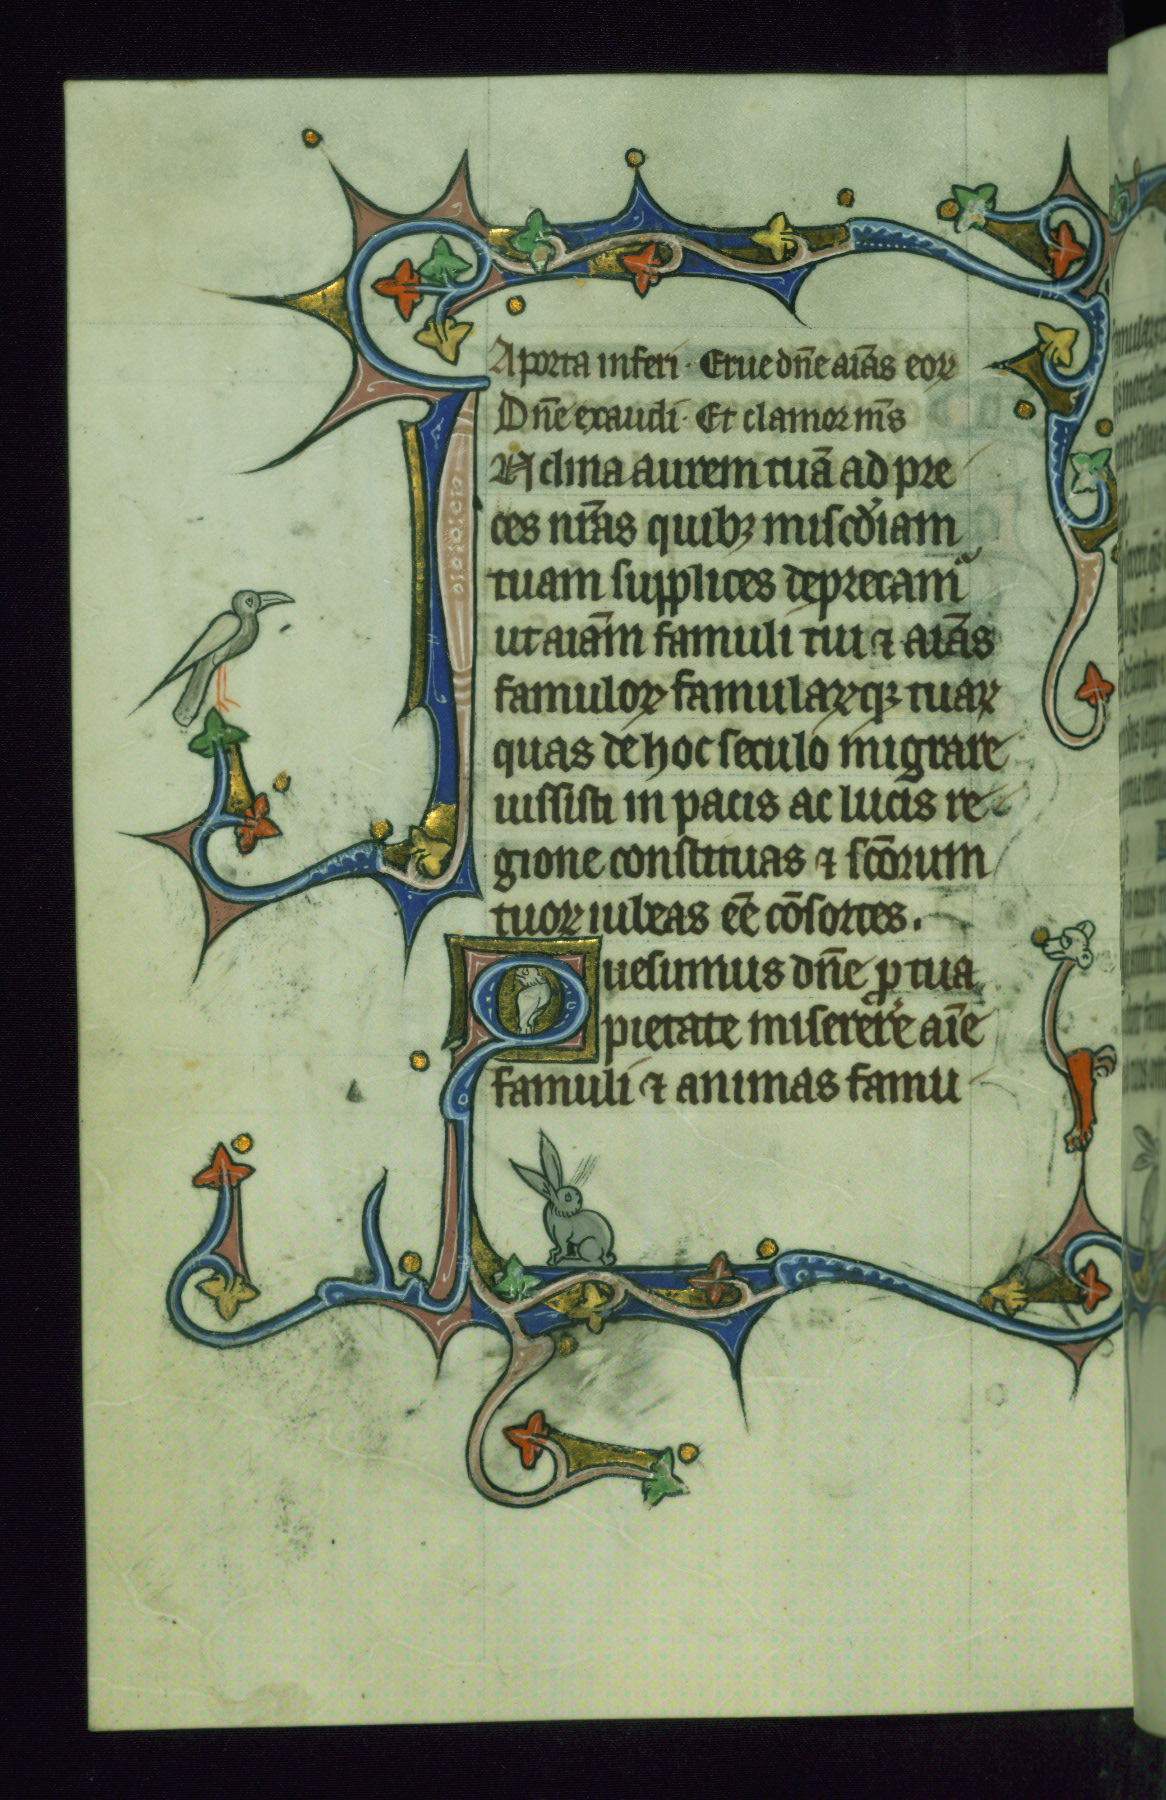 A porta inferi · Erue dn̄e aīas eoꝝ
Dn̄e exaudi · Et clamor m̄s
Nclina aurem tuā ad pre
ces nr̄as quibꝫ misc̄diam
tuam supplices deprecam᷑
ut aīam famuli tui ⁊ aīas
famuloꝝ famularꝝqꝫ tuaꝝ
quas de hoc seculo migrare
iussisti in pacis ac lucis re
gione constituas ⁊ sc̄orum
tuoꝝ iubeas eē cōsortes.
Quesumus dn̄e ꝓ tua
pietate miserere aīe
famuli ⁊ animas famu